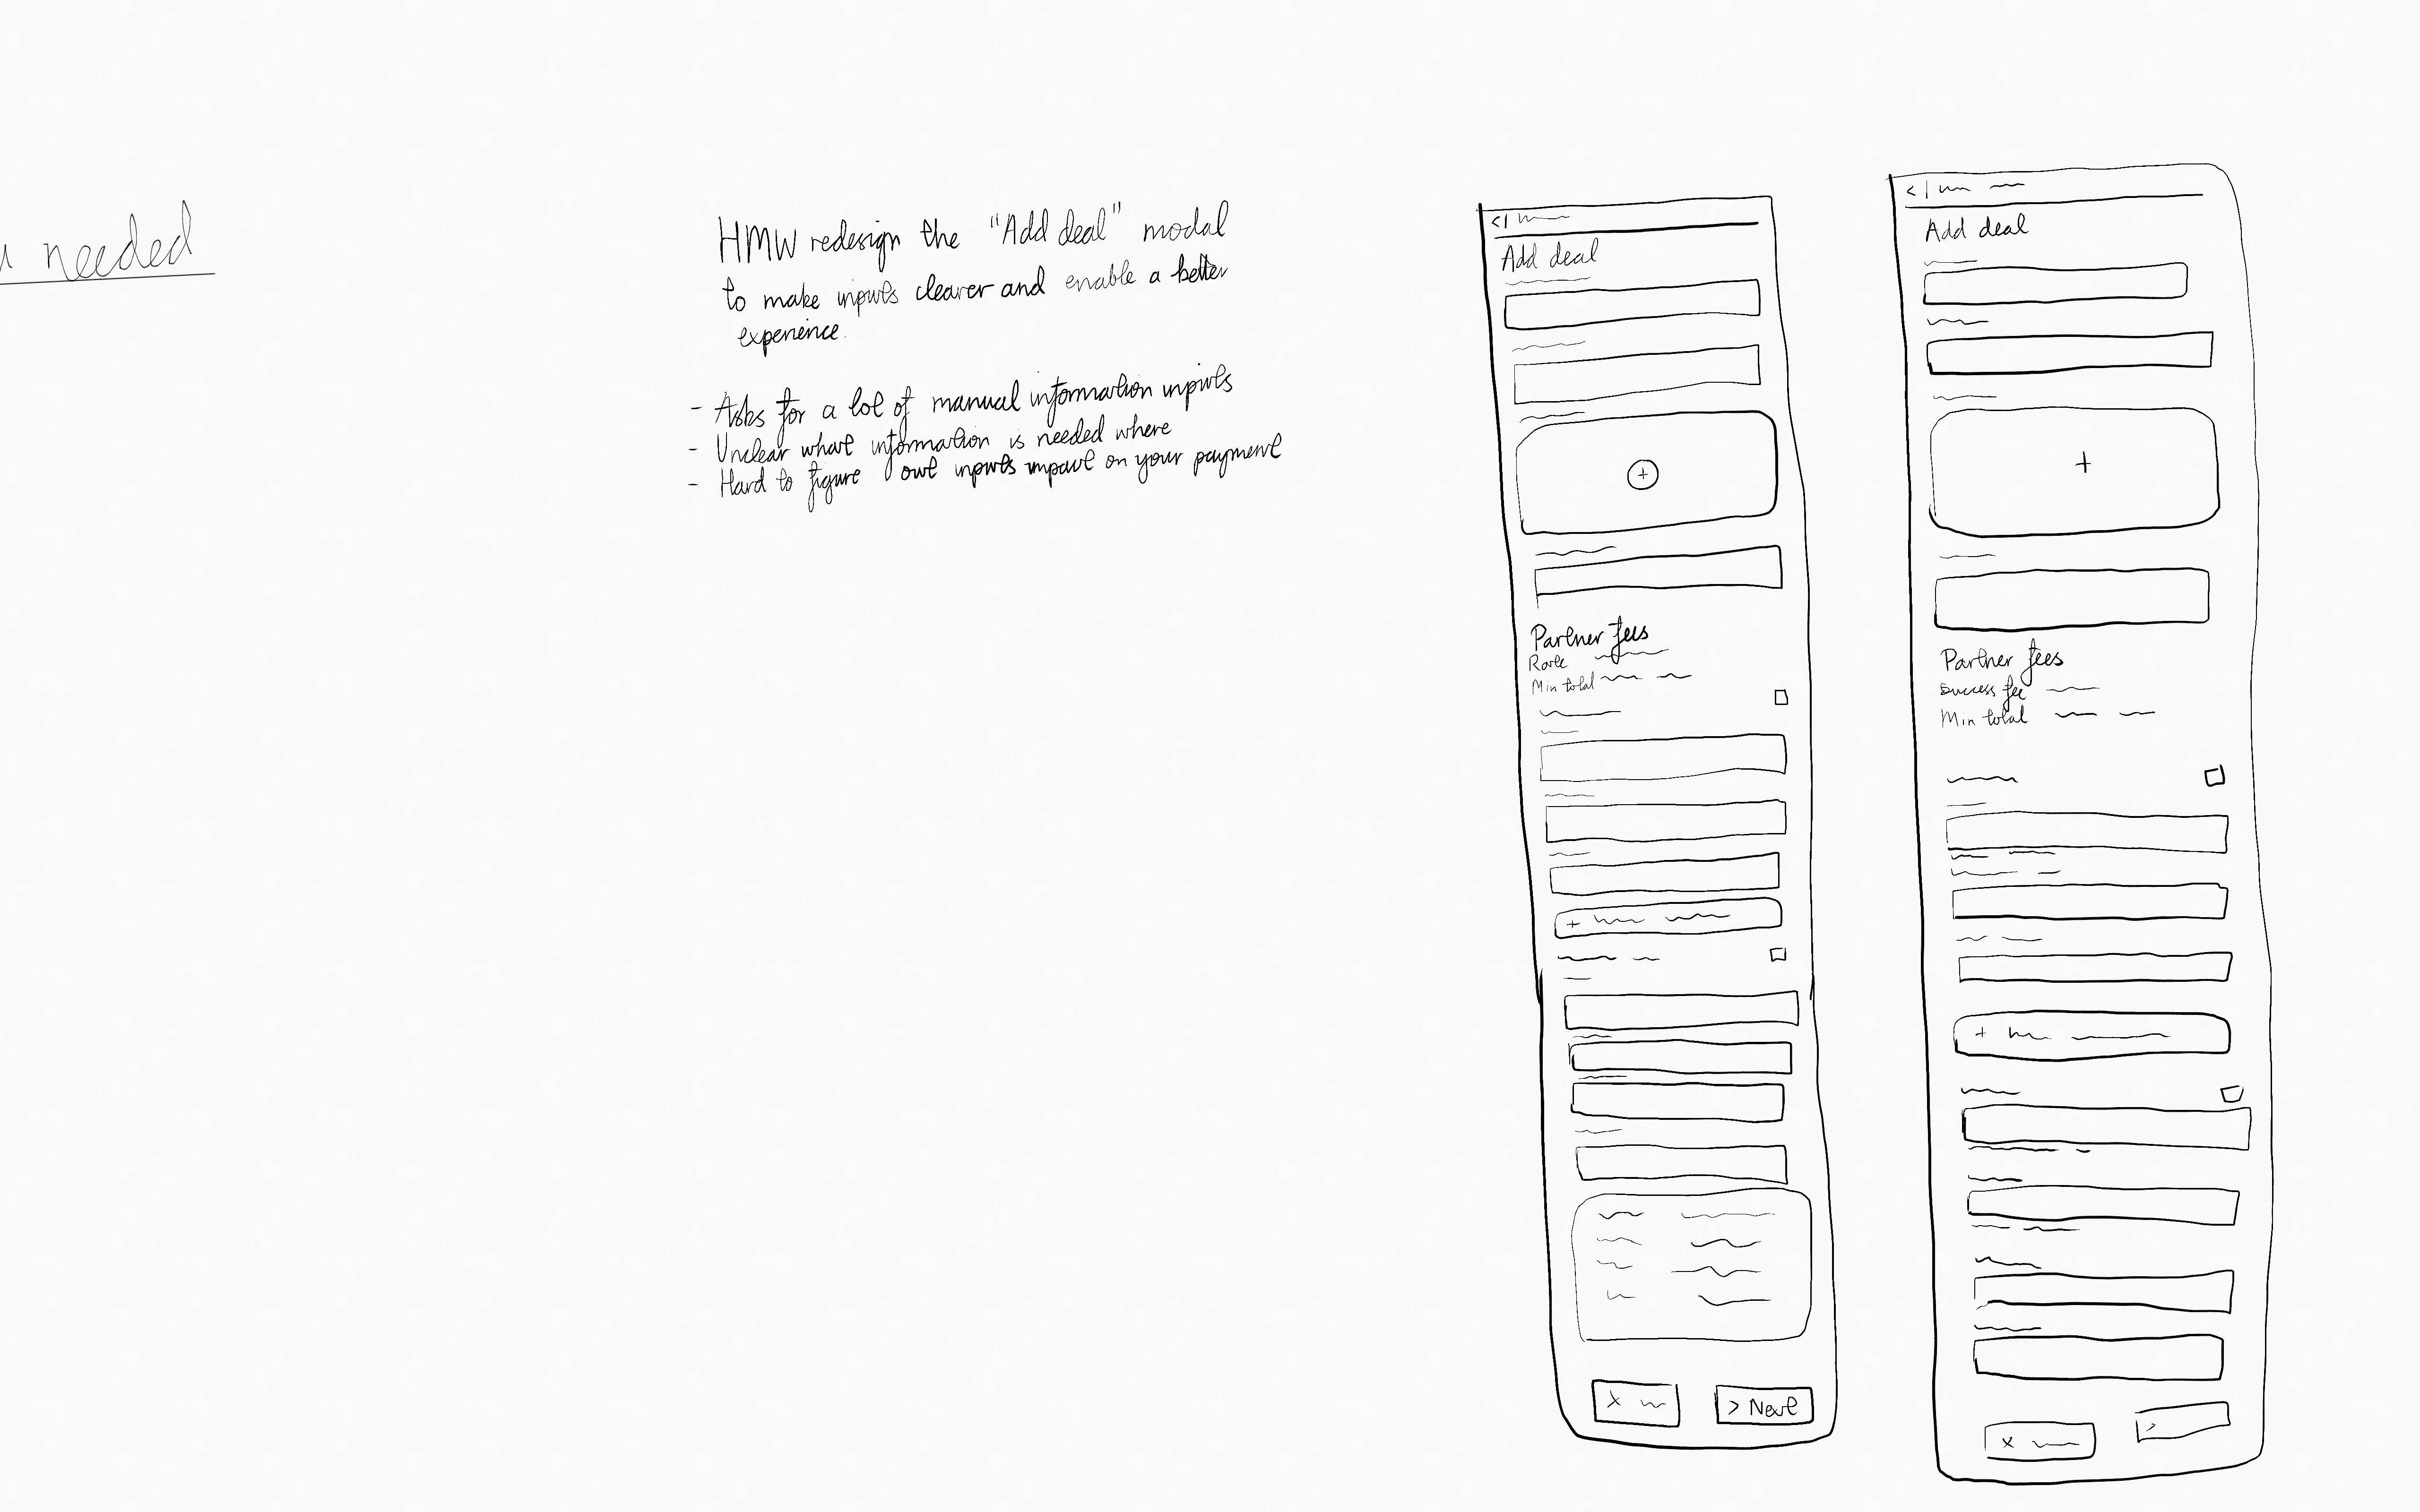 needed
HMW redesign the "Add deal" modal
to make inputs clearer and enable a better
experience.
- Asks for a lot of manual information inputs
- Unclear what information is needed where
- Hard to figure out inputs impact on your payment
Add deal
+
Partner fees
Rate
Min total
+
x
> Next
Add deal
+
Partner fees
Success fee
Min total
+
x
>